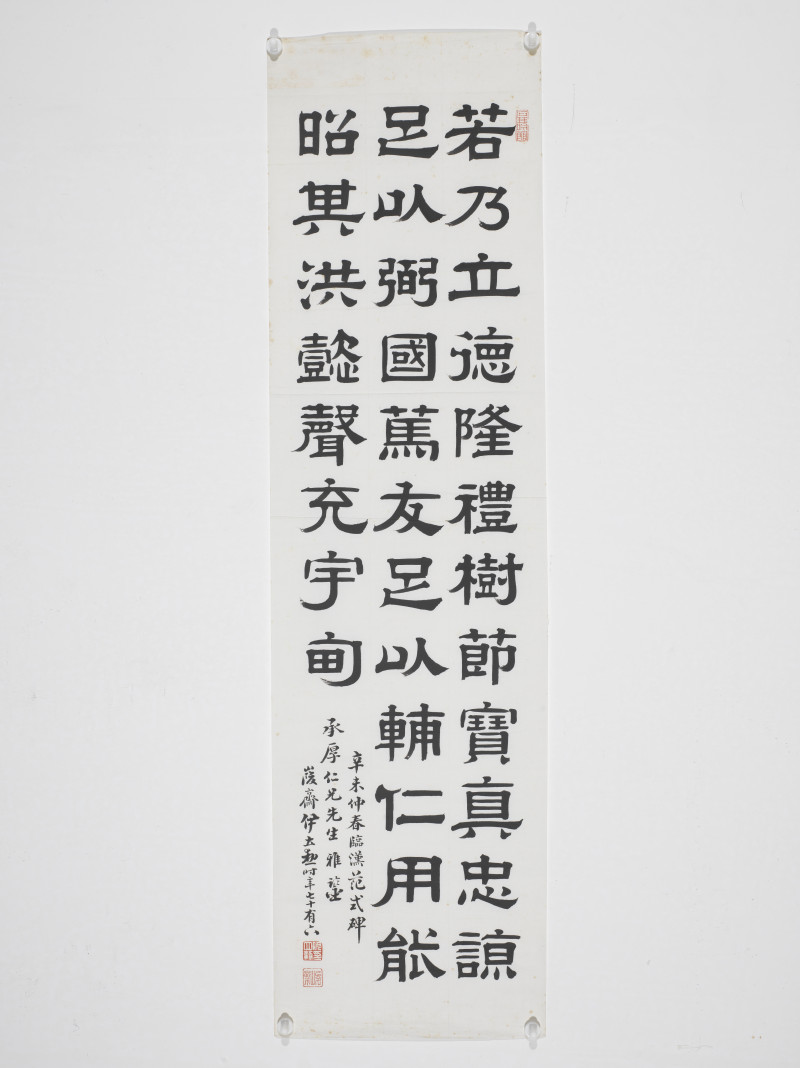 若乃立德隆禮樹節寶真忠諒
足以弼國篤友足以輔仁用能
昭其洪懿聲充宇甸
辛未仲春臨漢范式碑
承厚仁兄先生雅鑒
峻齋伊立勳時年七十有六